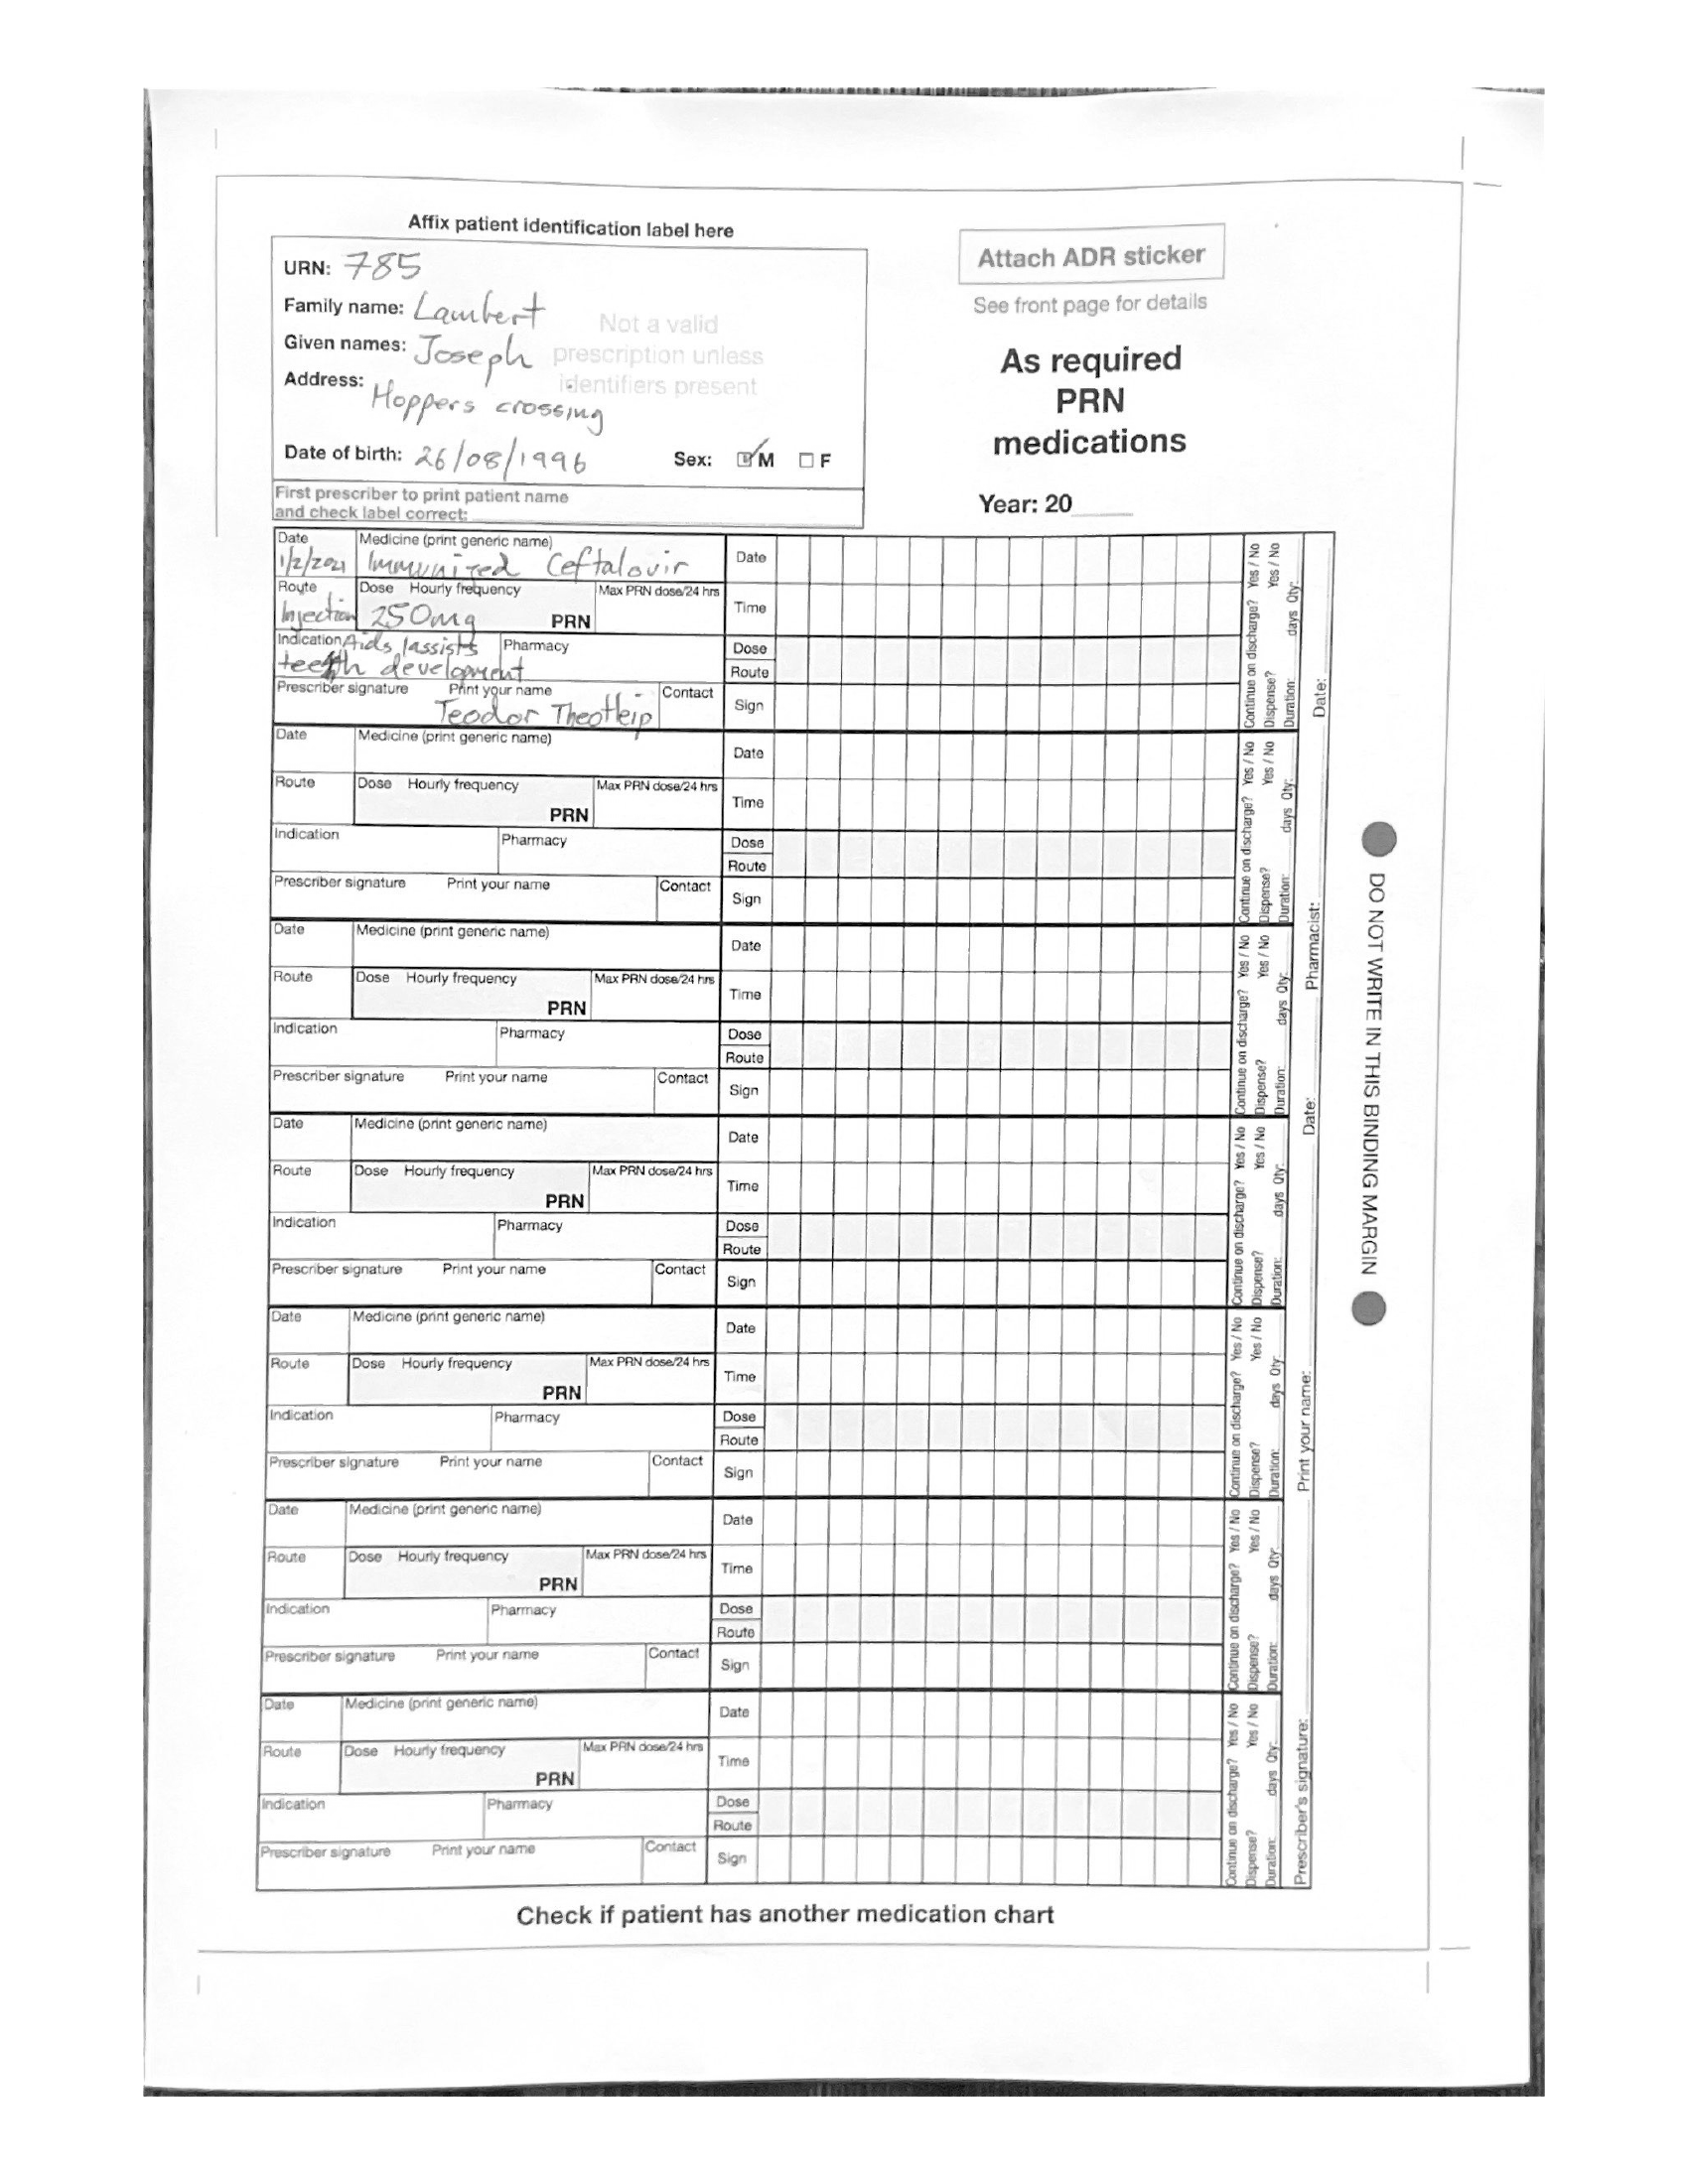 Affix patient identification label here
URN: 785
Family name: Lambert
Given names: Joseph
Address: Hoppers crossing
Not a valid
prescription unless
identifiers present
Date of birth: 26/08/1996 Sex: M F
First prescriber to print patient name
and check label correct:
Attach ADR sticker
See front page for details
As required
PRN
medications
Year: 20
Date Medicine (print generic name) Date
1/2/2021 Immunized Ceftalovir
Route Dose Hourly frequency Max PRN dose/24 hrs Time
Injection 250mg PRN
Indication Aids/assists Pharmacy Dose
teeth development Route
Prescriber signature Print your name Contact Sign
Teodor
Continue on discharge? Yes / No
Dispense? Yes / No
Duration: days Qty:
Date Medicine (print generic name) Date
Route Dose Hourly frequency Max PRN dose/24 hrs Time
PRN
Indication Pharmacy Dose
Route
Prescriber signature Print your name Contact Sign
Continue on discharge? Yes / No
Dispense? Yes / No
Duration: days Qty:
Date Medicine (print generic name) Date
Route Dose Hourly frequency Max PRN dose/24 hrs Time
PRN
Indication Pharmacy Dose
Route
Prescriber signature Print your name Contact Sign
Continue on discharge? Yes / No
Dispense? Yes / No
Duration: days Qty:
Date Medicine (print generic name) Date
Route Dose Hourly frequency Max PRN dose/24 hrs Time
PRN
Indication Pharmacy Dose
Route
Prescriber signature Print your name Contact Sign
Continue on discharge? Yes / No
Dispense? Yes / No
Duration: days Qty:
Date Medicine (print generic name) Date
Route Dose Hourly frequency Max PRN dose/24 hrs Time
PRN
Indication Pharmacy Dose
Route
Prescriber signature Print your name Contact Sign
Continue on discharge? Yes / No
Dispense? Yes / No
Duration: days Qty:
Date Medicine (print generic name) Date
Route Dose Hourly frequency Max PRN dose/24 hrs Time
PRN
Indication Pharmacy Dose
Route
Prescriber signature Print your name Contact Sign
Continue on discharge? Yes / No
Dispense? Yes / No
Duration: days Qty:
Date Medicine (print generic name) Date
Route Dose Hourly frequency Max PRN dose/24 hrs Time
PRN
Indication Pharmacy Dose
Route
Prescriber signature Print your name Contact Sign
Continue on discharge? Yes / No
Dispense? Yes / No
Duration: days Qty:
Prescriber's signature: Print your name: Date: Pharmacist: Date:
DO NOT WRITE IN THIS BINDING MARGIN
Check if patient has another medication chart